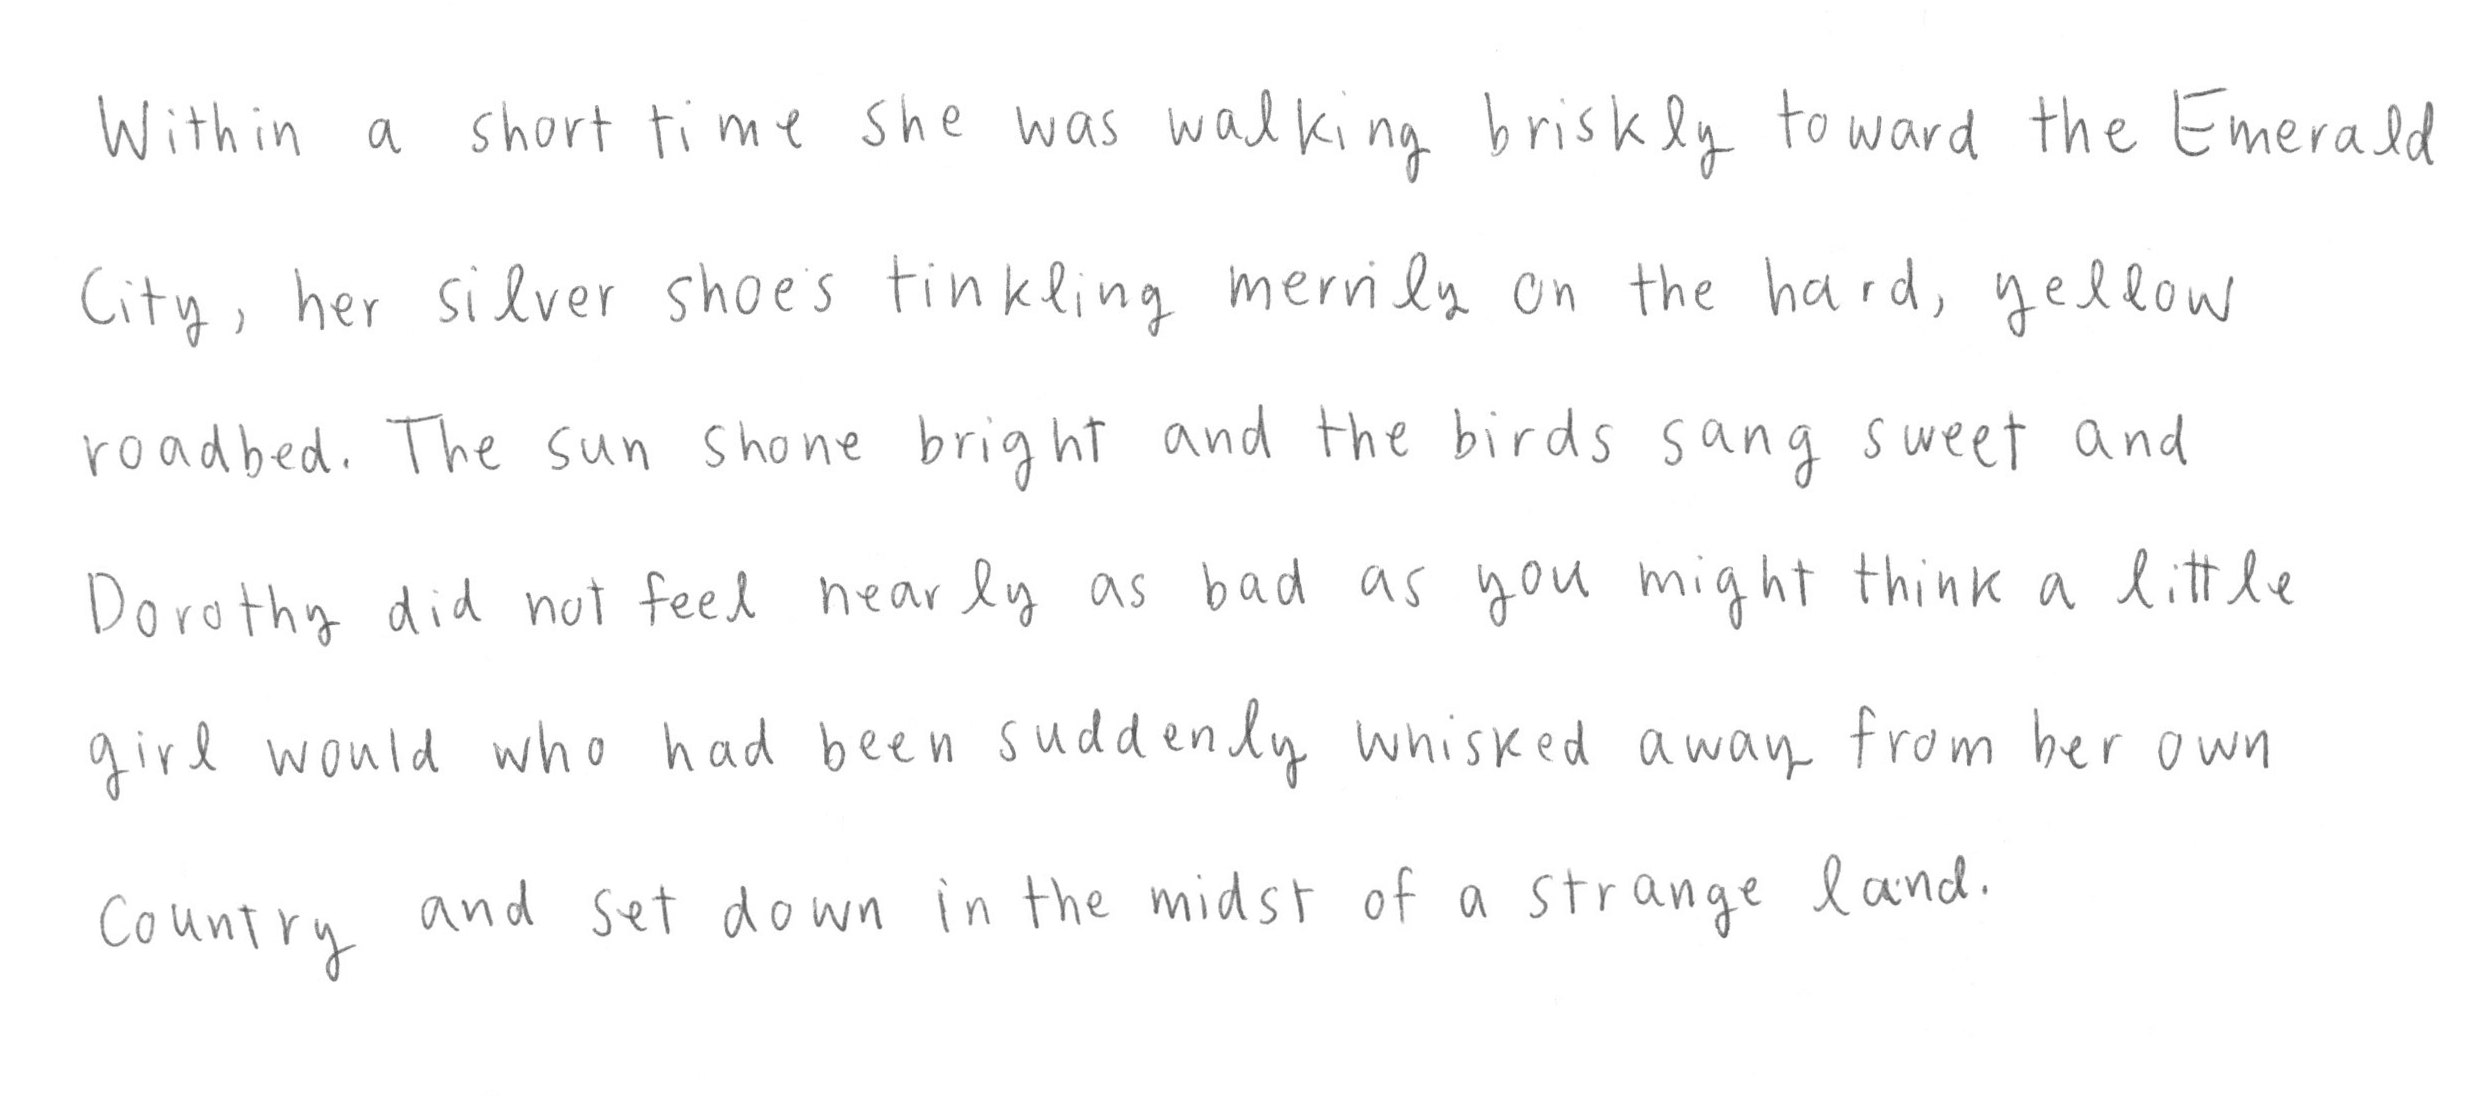 Within a short time she was walking briskly toward the Emerald
City, her silver shoes tinkling merrily on the hard, yellow
roadbed. The sun shone bright and the birds sang sweet and
Dorothy did not feel nearly as bad as you might think a little
girl would who had been suddenly whisked away from her own
country and set down in the midst of a strange land.